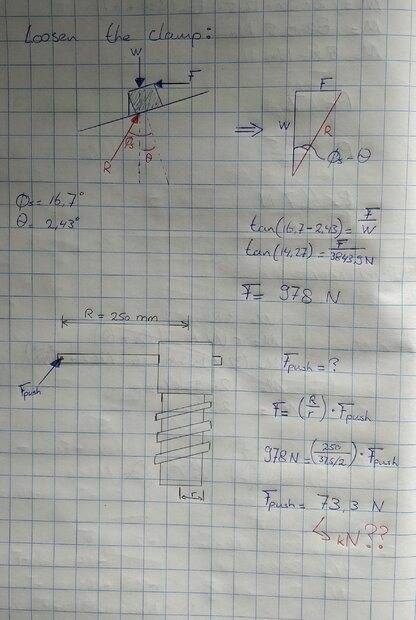 Loosen the clamp:
W
F
R
ϕs
θ
⇒
F
W
R
ϕs - θ
ϕs = 16,7°
θ = 2,43°
tan(16,7-2,43) = F/W
tan(14,27) = F/3843,9N
F = 978 N
R = 250 mm
Fpush
Fpush = ?
F = (R/r) · Fpush
978 N = (250/(37,5/2)) · Fpush
r
Fpush = 73,3 N
↳ kN??